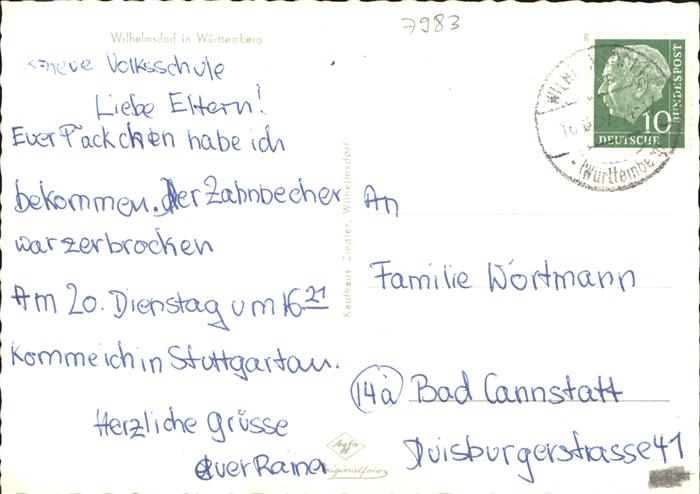 7983
Wilhelmsdorf in Württemberg
<= neue Volksschule
Liebe Eltern!
Euer Päckchen habe ich
bekommen. Der Zahnbecher
war zerbrocken
Am 20. Dienstag um 16 21
komme ich in Stuttgart an.
Herzliche Grüsse
Euer Rainer
Kaufhaus Ziegler, Wilhelmsdorf
Agfa
Originalfoto
DEUTSCHE
BUNDESPOST
10
(Württemberg)
An
Familie Wörtmann
14a Bad Cannstatt
Duisburgerstrasse 41